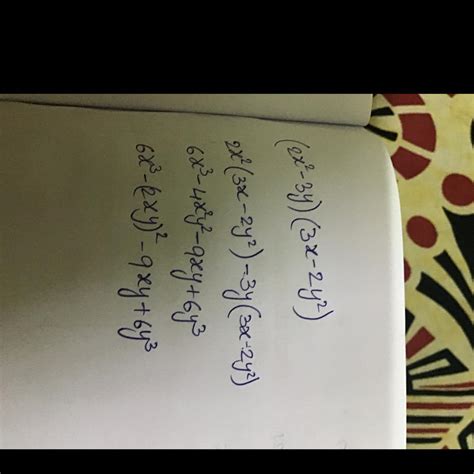 (2x²-3y)(3x-2y²)
2x²(3x-2y²)-3y(3x-2y²)
6x³-4x²y²-9xy+6y³
6x³-(2xy)²-9xy+6y³